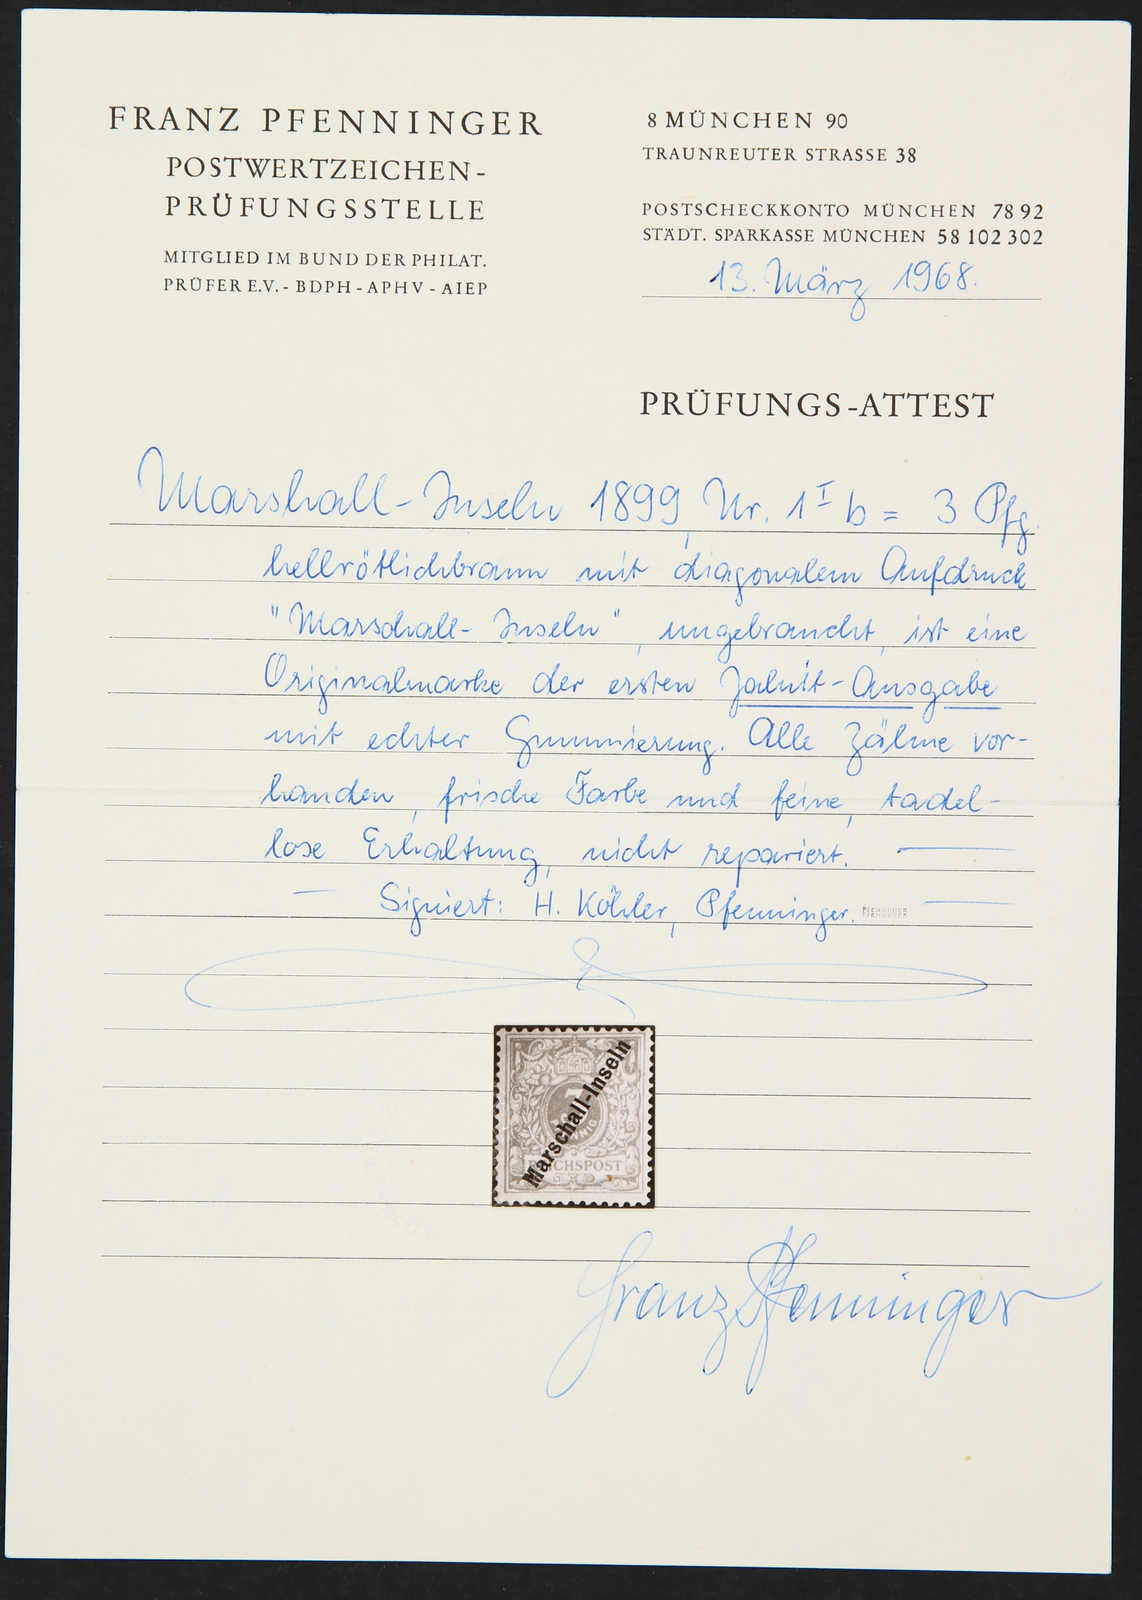 FRANZ PFENNINGER
POSTWERTZEICHEN-
PRÜFUNGSSTELLE
MITGLIED IM BUND DER PHILAT.
PRÜFER E.V. - BDPH - APHV - AIEP
8 MÜNCHEN 90
TRAUNREUTER STRASSE 38
POSTSCHECKKONTO MÜNCHEN 78 92
STÄDT. SPARKASSE MÜNCHEN 58 102 302
13. März 1968.
PRÜFUNGS-ATTEST
Marshall-Inseln 1899, Nr. 1 I b = 3 Pfg.
hellrötlichbraun mit diagonalem Aufdruck
"Marschall-Inseln", ungebraucht, ist eine
Originalmarke der ersten Jaluit-Ausgabe
mit echter Gummierung. Alle Zähne vor-
handen, frische Farbe und feine, tadel-
lose Erhaltung, nicht repariert.
Signiert: H. Köhler, Pfenninger. PFENNINGER
Marschall-Inseln
3
REICHSPOST
Franz Pfenninger